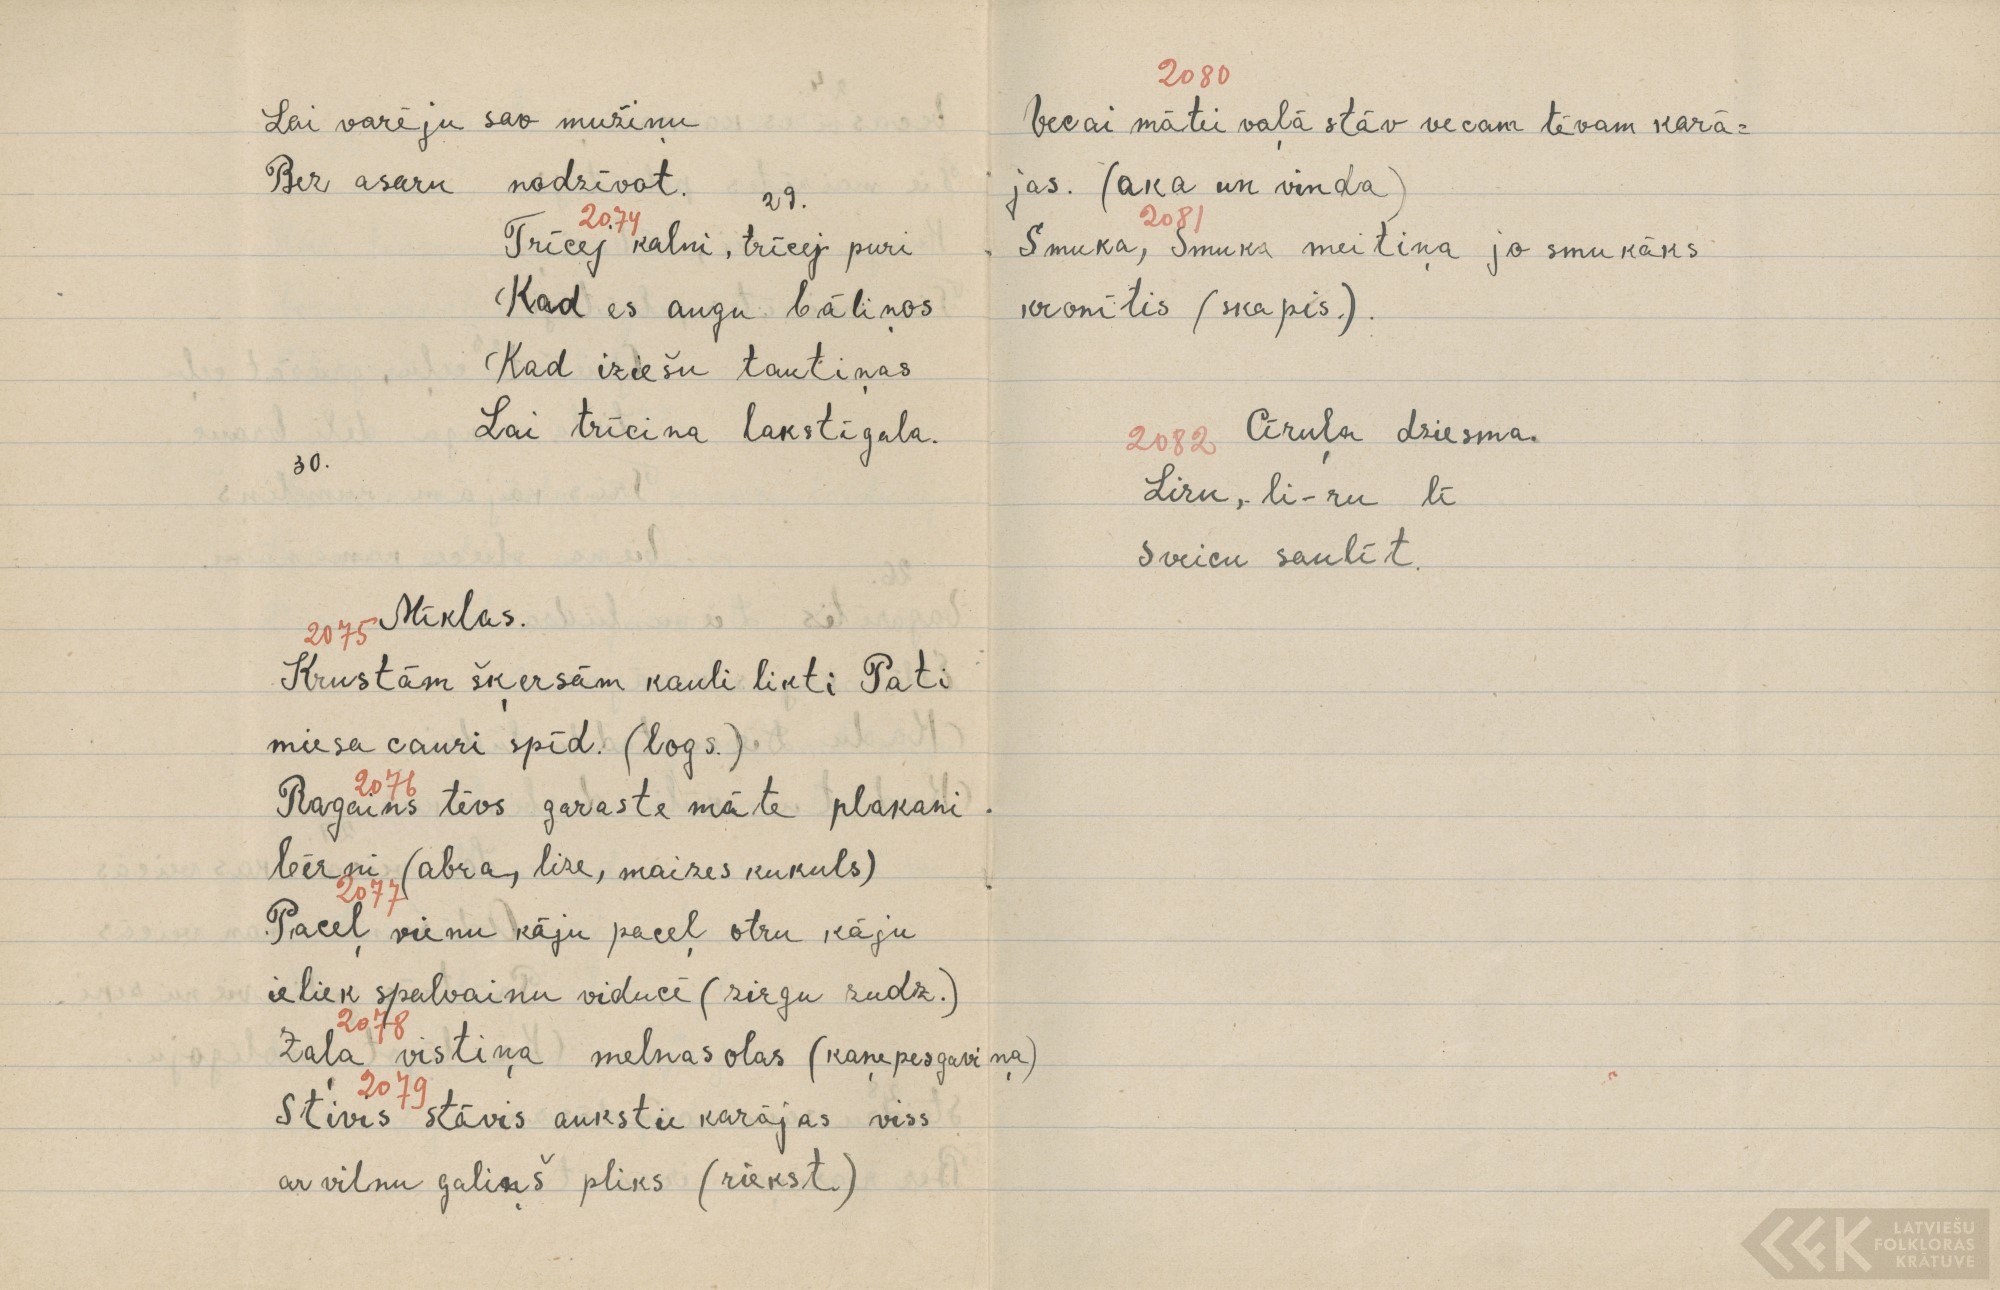 Lai varēju savo mužiņu
Bez asaru nodzīvot.
29.
2074
Trīcēj kalni, trīcēj puri
Kad es augu bāliņos
Kad iziešu tautiņas
Lai trīcina lakstīgala.
30.
Mīklas.
2075
Krustām šķersām kauli likti Pati
miesa cauri spīd. (logs.)
2076
Ragains tēvs garaste māte plakani
bērni (abra, lize, maizes kukuls)
2077
Paceļ vienu kāju paceļ otru kāju
ieliek spalvainu viducē (zirgu sudz.)
2078
Zaļa vistiņa melnas olas (kaņepes gaviņa)
2079
Stīvis stāvis aukstie karājas viss
ar vilnu galiņš pliks (riekst.)
2080
Vecai mātei vaļā stāv vecam tēvam karā=
jas. (aka un vinda)
2081
Smuka, Smuka meitiņa jo smukāks
kronītis (skapis.).
2082 Cīruļa dziesma.
Liru, li-ru lī
sveicu saulīt.
LATVIEŠU
FOLKLORAS
KRĀTUVE